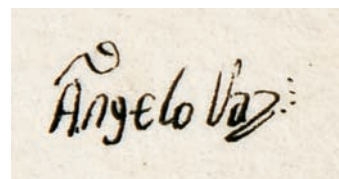 Ângelo Vaz